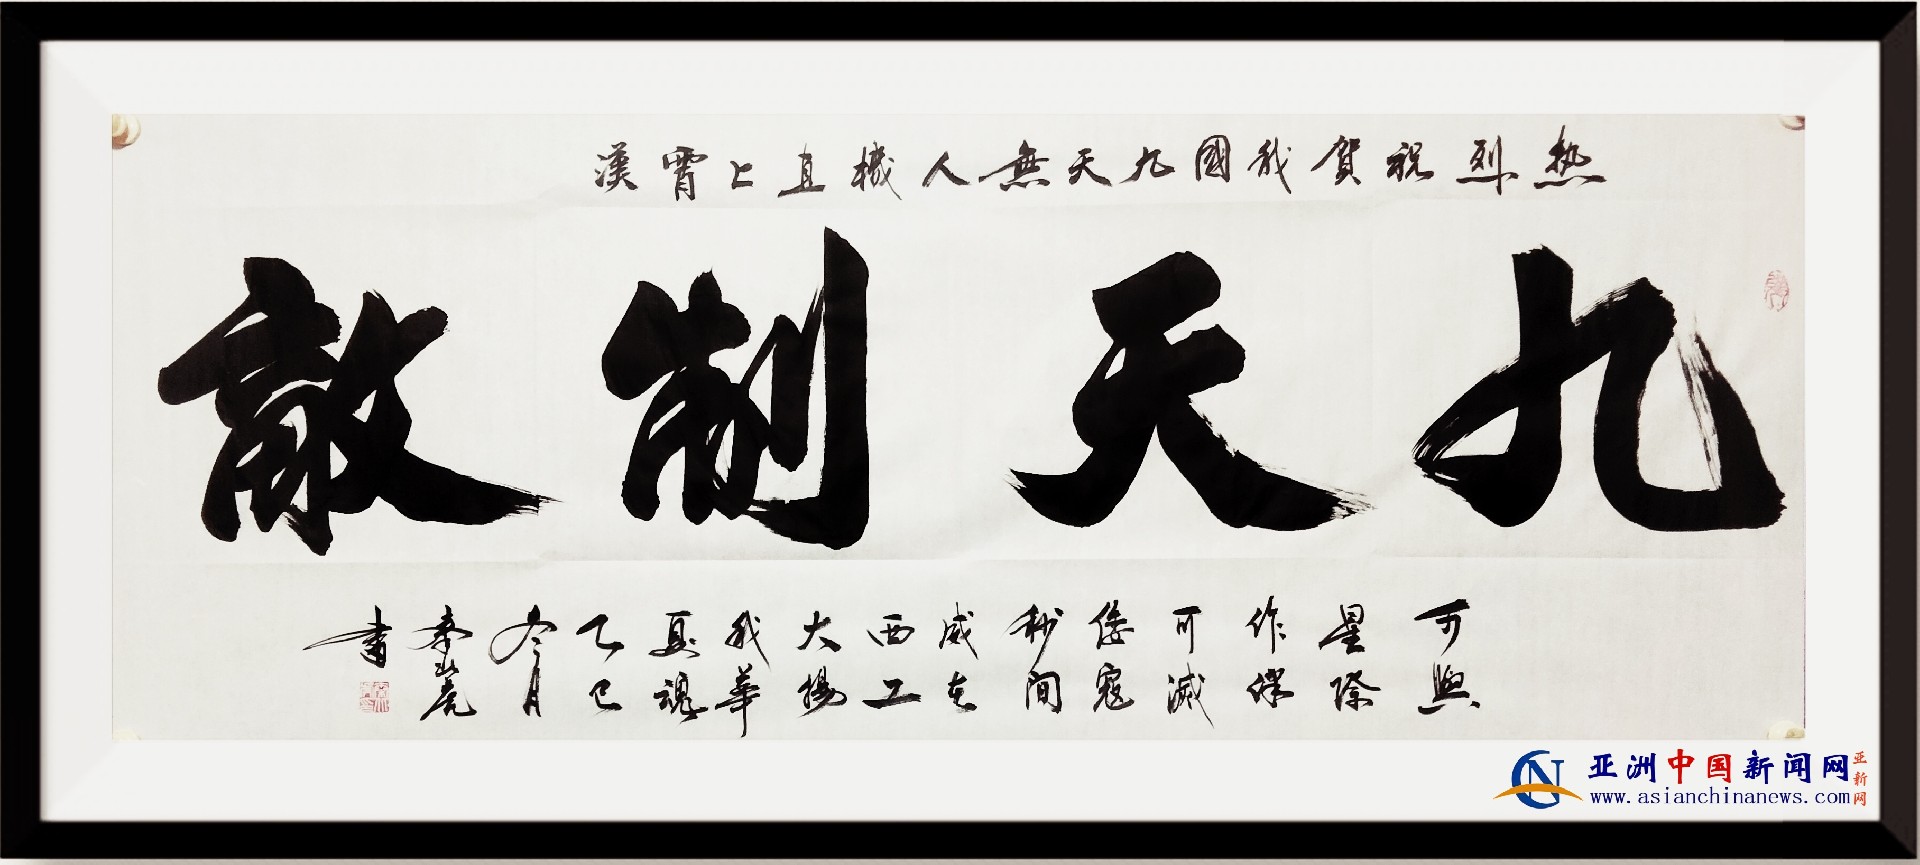 热烈祝賀我國九天無人機直上霄漢
九天制敵
可與
星際
作伴
可滅
倭寇
秒間
威在
西工
大揚
我華
夏魂
乙巳
冬月
書
亚洲中国新闻网
亚新网
www.asianchinanews.com